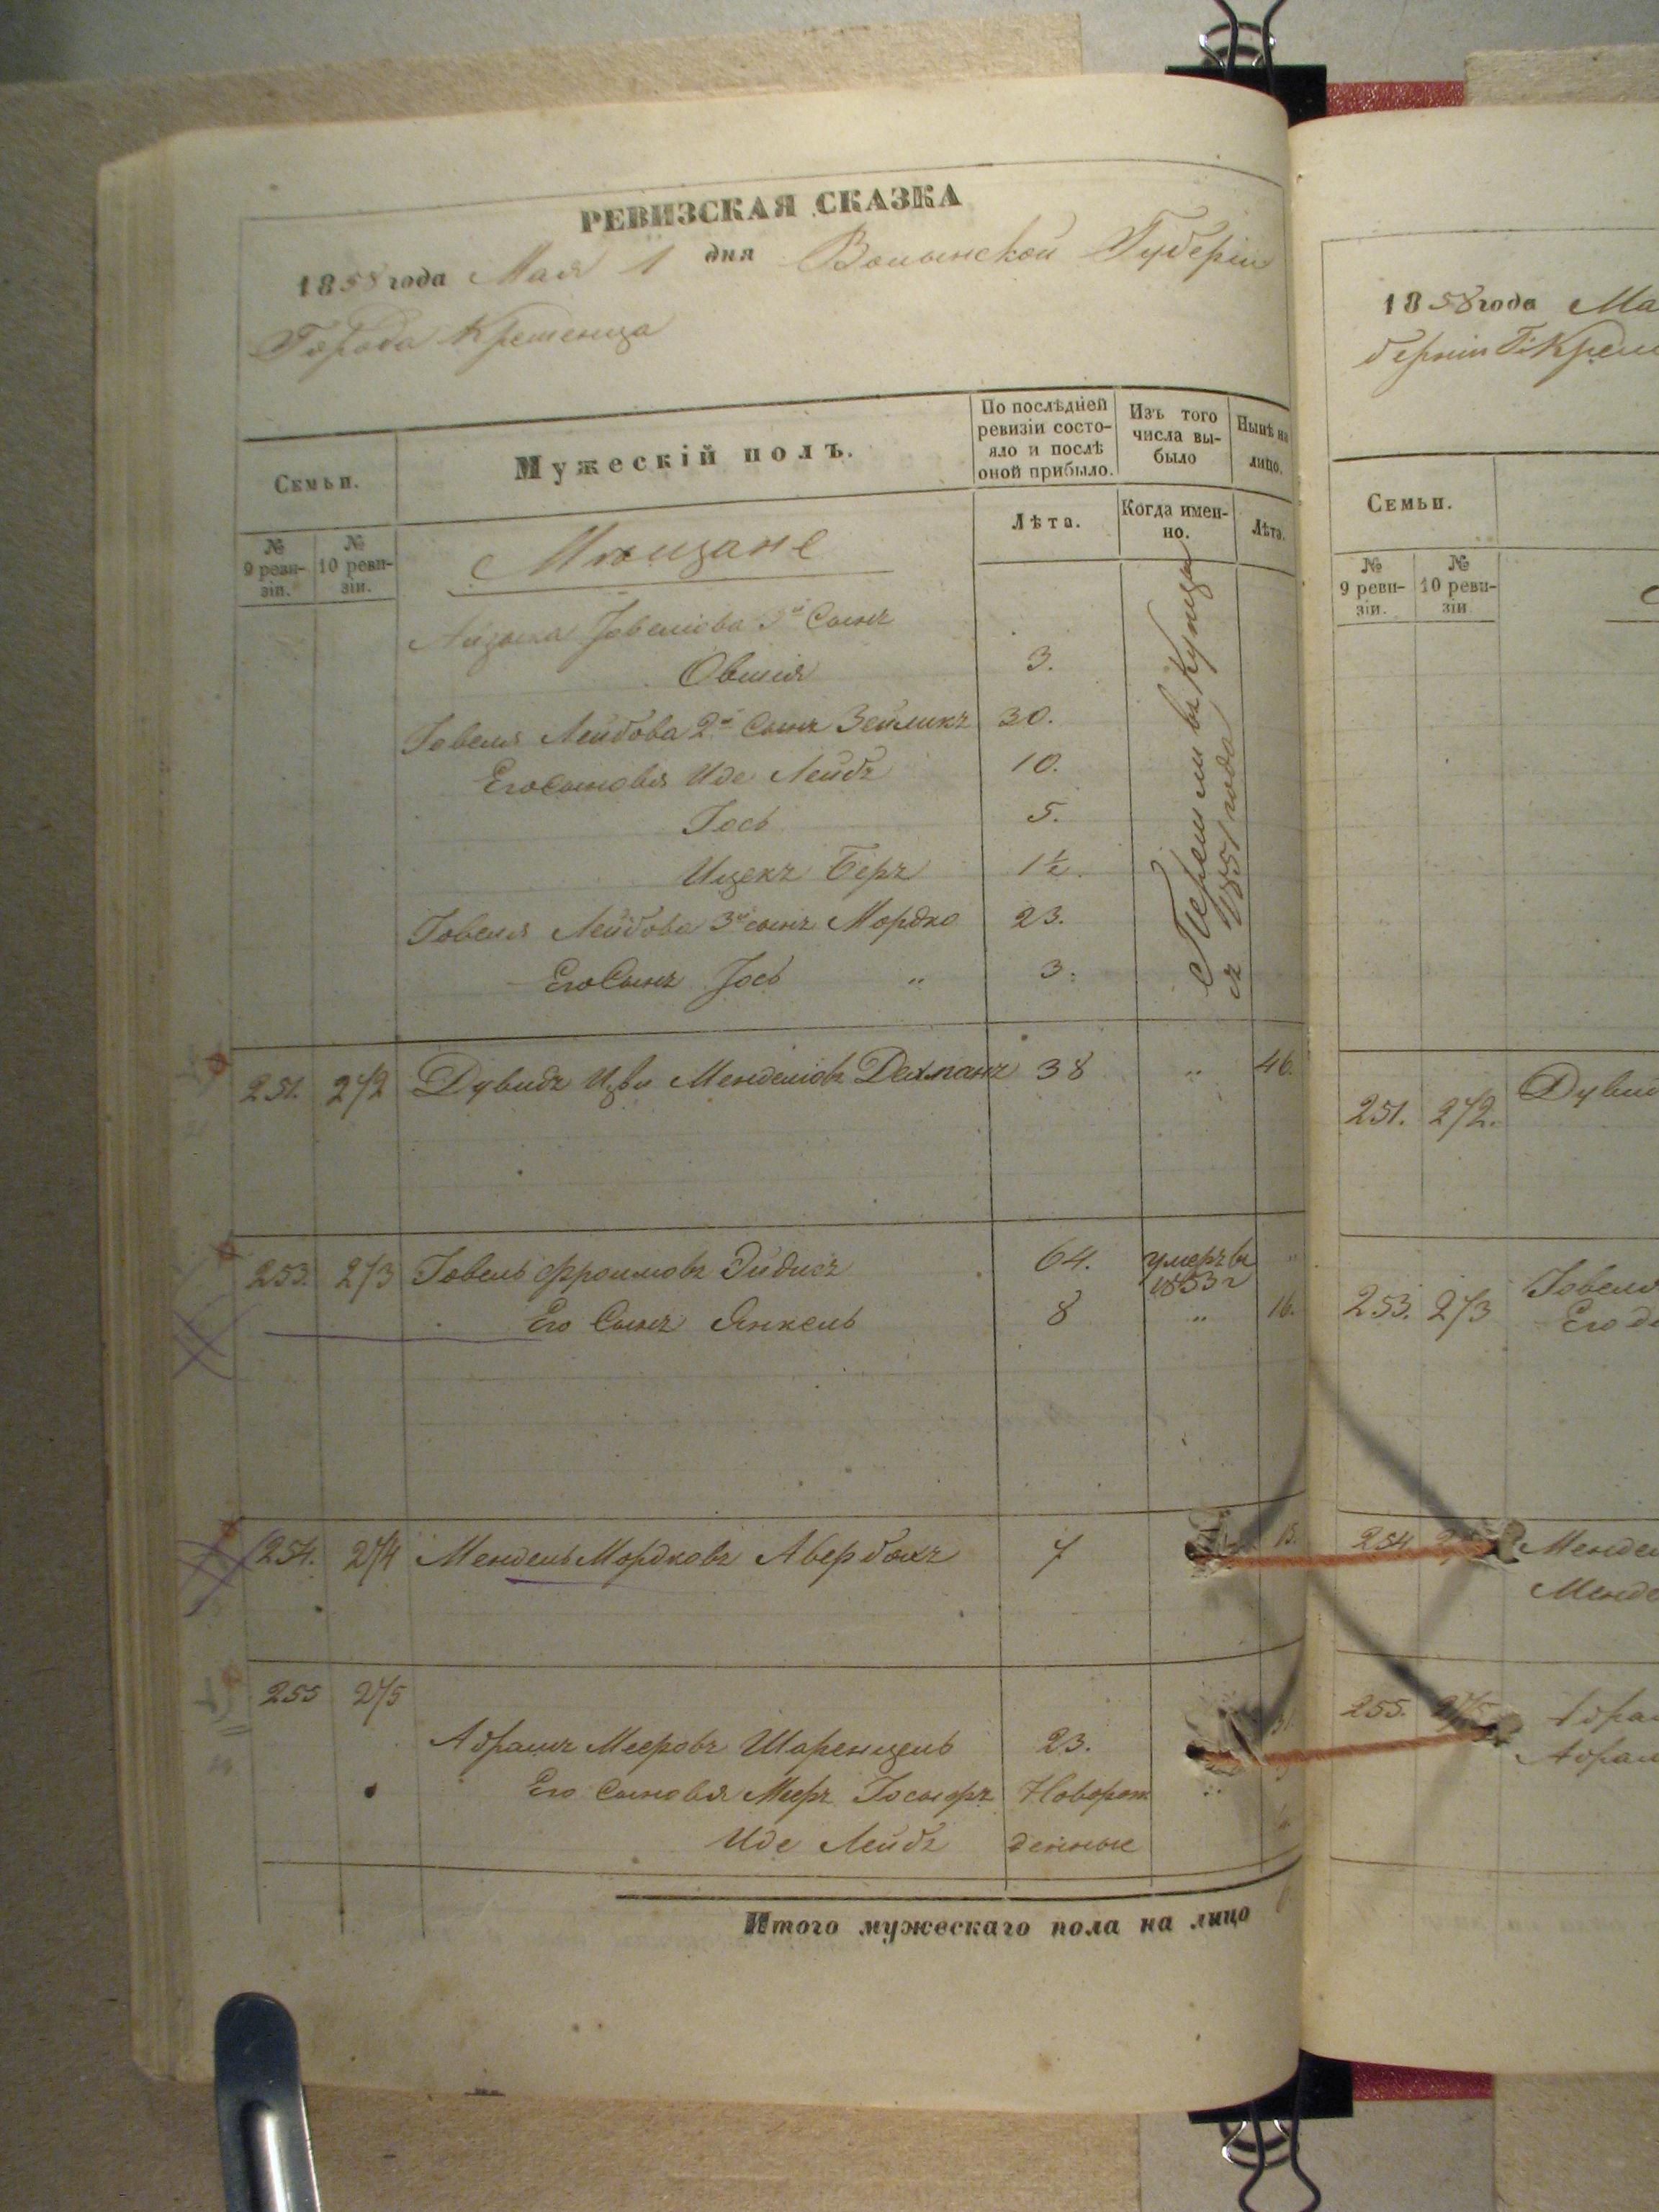 РЕВИЗСКАЯ СКАЗКА
1858 года Мая 1 дня Волынской Губерніи
Города Кременца
Семьи.
Мужескій полъ.
По послѣдней ревизіи состояло и послѣ оной прибыло.
Изъ того числа выбыло
Нынѣ на лицо.
№ 9 ревизіи.
№ 10 ревизіи.
Мѣщане
Лѣта.
Когда именно.
Лѣта.
Іовелюва 3й Сынъ
Овшія 3.
Іовеля Лейбова 2й Сынъ Зейликъ 30.
Его Сыновья Иде Лейбъ 10.
Іось 5.
Ицекъ Беръ 1½.
Іовеля Лейбова 3й сынъ Мордко 23.
Его Сынъ Іось " 3.
Перешли въ Купцы
съ 1851 года
251. 272 Дувидъ Цви Менделіовъ Дехманъ 38 " 46.
253. 273 Іовель Фроимовъ Эйдисъ 64. умеръ въ 1853 г "
Его Сынъ Янкель 8 " 16.
254. 274 Мендель Мордковъ Авербахъ 7 15.
255 275
Абрамъ Мееровъ Шаренцель 23. 31.
Его Сыновья Меер Іосифъ Новорож
Иде Лейбъ денные
Итого мужескаго пола на лицо
1858 года Ма
берніи Г. Крем
Семьи.
№ 9 ревизіи.
№ 10 ревизіи
251. 272. Дувид
253. 273 Іовел
Его д
254 Мендел
Менде
255. 275 Абрам
Абрам